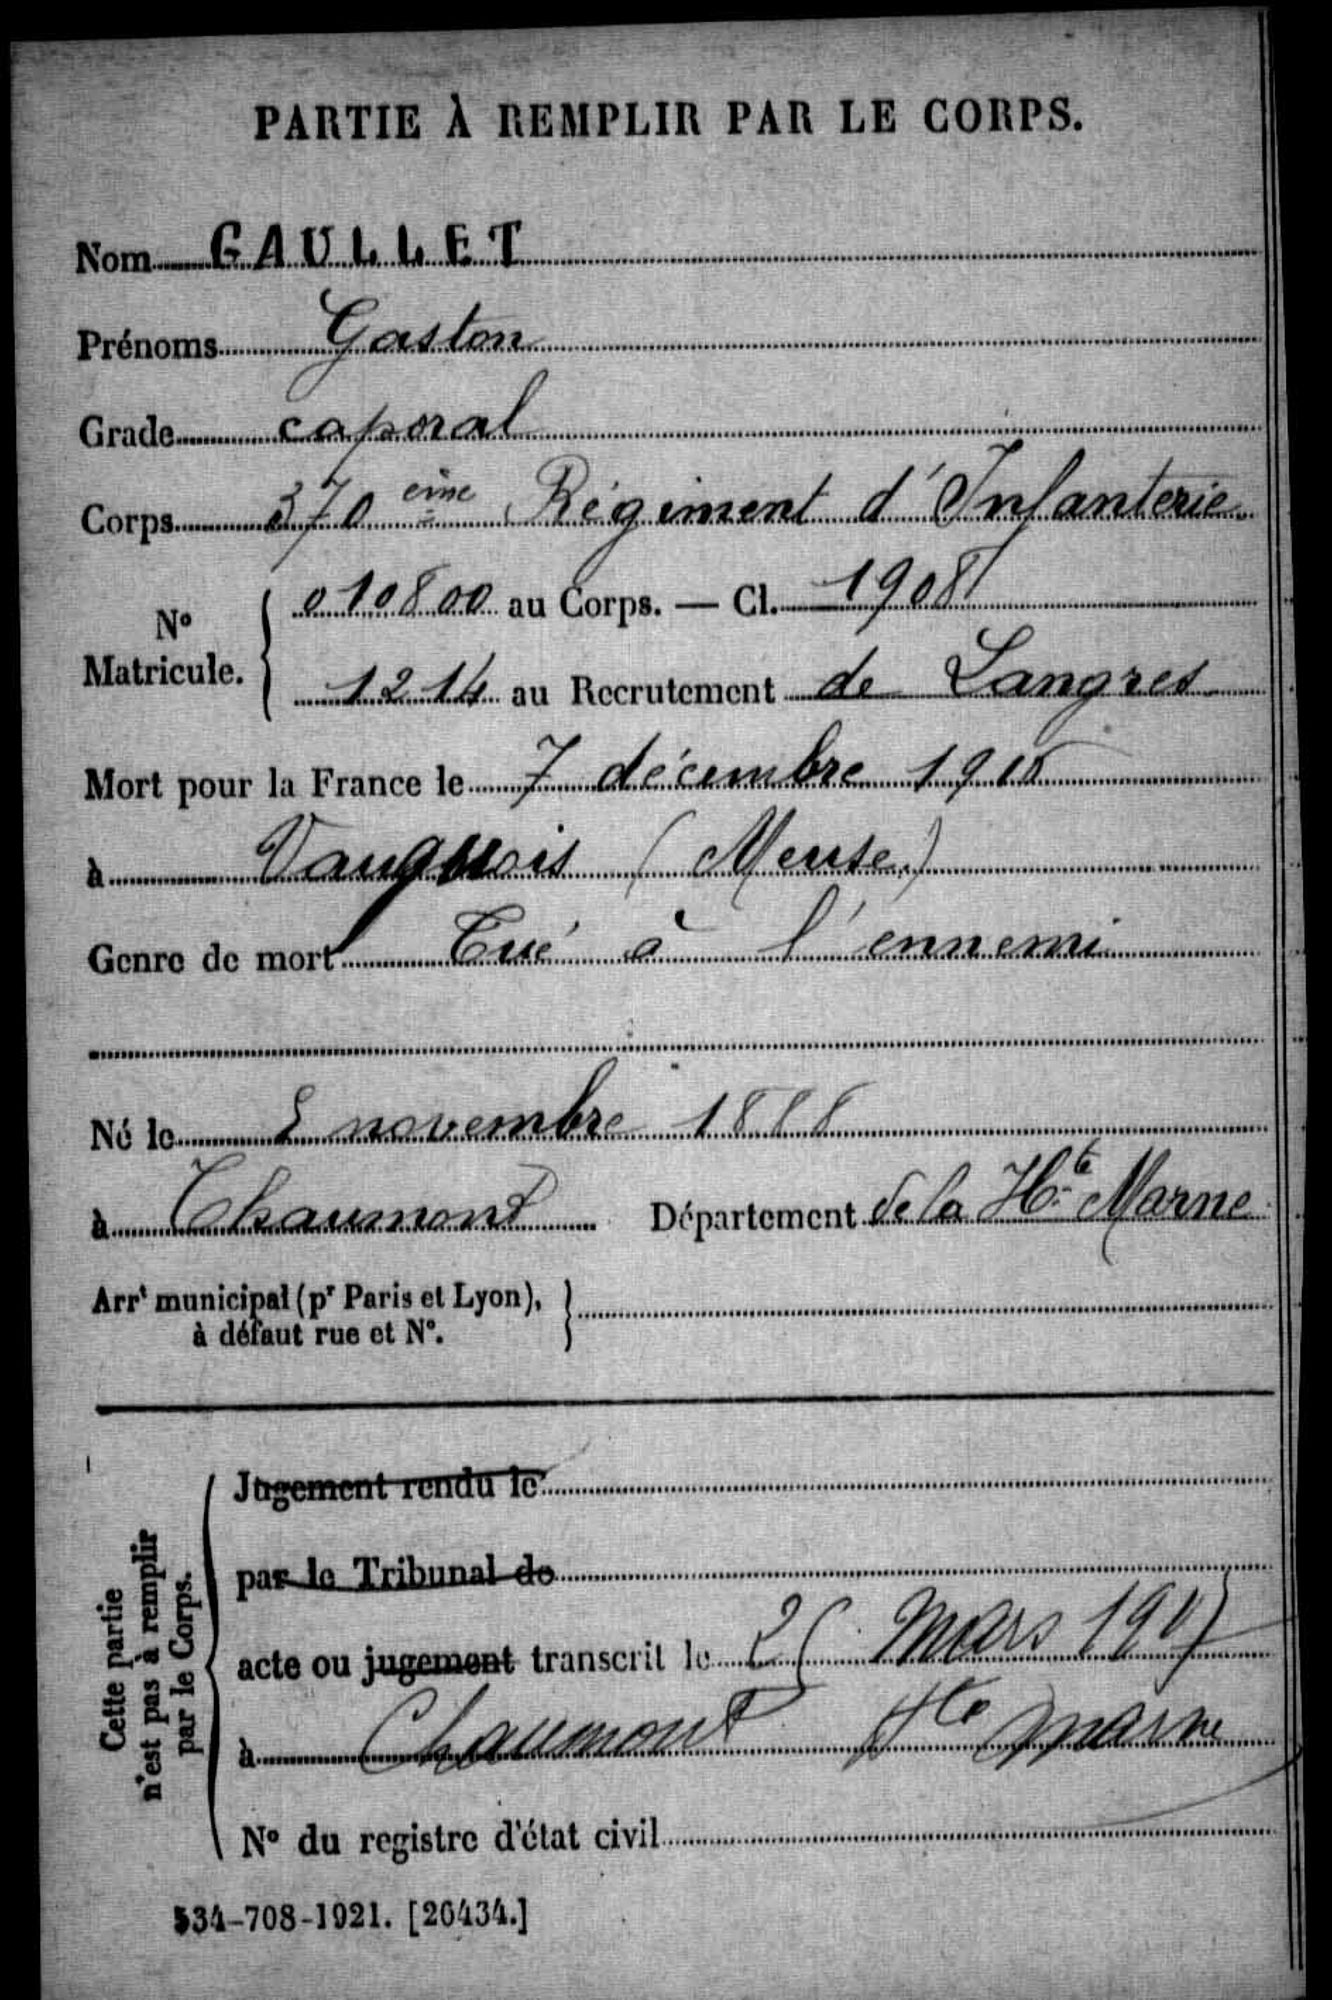 PARTIE À REMPLIR PAR LE CORPS.
Nom GAULLET
Prénoms Gaston
Grade caporal
Corps 370 eme Régiment d'Infanterie
N° Matricule. 010800 au Corps. — Cl. 1908
1214 au Recrutement de Langres
Mort pour la France le 7 décembre 1915
à Vauquois (Meuse)
Genre de mort Tué à l'ennemi
Né le novembre 1888
à Chaumont Département de la Hte Marne
Arrt municipal (pr Paris et Lyon),
à défaut rue et N°.
Cette partie
n'est pas à remplir
par le Corps.
Jugement rendu le
par le Tribunal de
acte ou jugement transcrit le Mars
à Chaumont Hte Marne
N° du registre d'état civil
534-708-1921. [26434.]